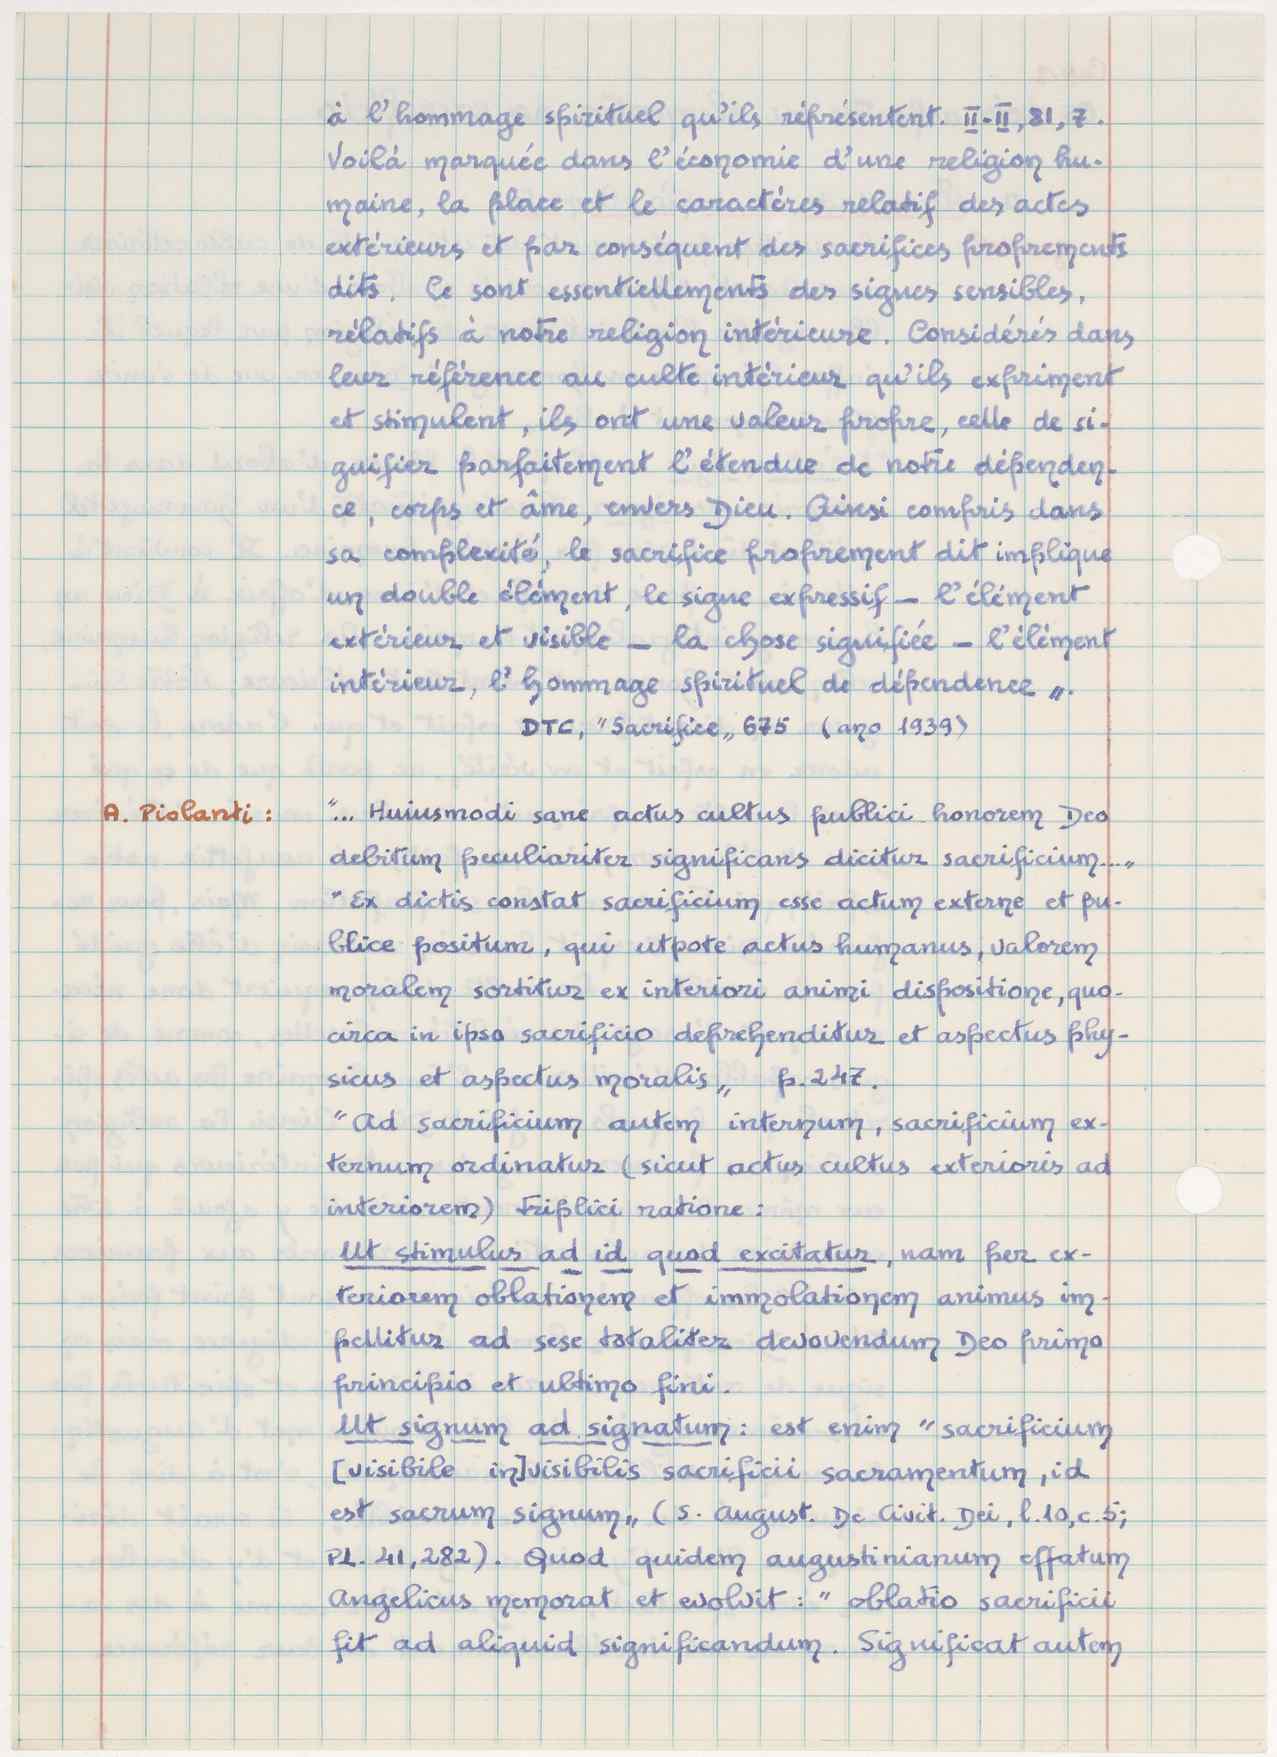 à l'hommage spirituel qu'ils réprésentent. II-II, 81, 7.
Voilá marquée dans l'économie d'une religion hu-
maine, la place et le caractéres relatif des actes
extérieurs et par conséquent des sacrifices proprements
dits. Ce sont essentiellements des signes sensibles,
rélatifs à notre religion intérieure. Considérés dans
leur référence au culte intérieur qu'ils expriment
et stimulent, ils ont une valeur propre, celle de si-
gnifier parfaitement l'étendue de notre dépenden-
ce, corps et âme, envers Dieu. Ainsi compris dans
sa complexité, le sacrifice proprement dit implique
un double élément, le signe expressif — l'élément
extérieur et visible — la chose signifiée — l'élément
intérieur, l'hommage spirituel de dépendence„.
DTC, "Sacrifice„ 675 (ano 1939)
A. Piolanti: "... Huiusmodi sane actus cultus publici honorem Deo
debitum peculiariter significans dicitur sacrificium...„
"Ex dictis constat sacrificium esse actum externe et pu-
blice positum, qui utpote actus humanus, valorem
moralem sortitur ex interiori animi dispositione, quo-
circa in ipso sacrificio deprehenditur et aspectus phy-
sicus et aspectus moralis„ p. 247.
"Ad sacrificium autem internum, sacrificium ex-
ternum ordinatur (sicut actus cultus exterioris ad
interiorem) triplici ratione:
Ut stimulus ad id quod excitatur, nam per ex-
teriorem oblationem et immolationem animus im-
pellitur ad sese totaliter devovendum Deo primo
principio et ultimo fini.
Ut signum ad signatum: est enim "sacrificium
[visibile in]visibilis sacrificii sacramentum, id
est sacrum signum„ (S. August. De Civit. Dei, l. 10, c. 5;
PL. 41, 282). Quod quidem augustinianum effatum
Angelicus memorat et evolvit: "oblatio sacrificii
fit ad aliquid significandum. Significat autem